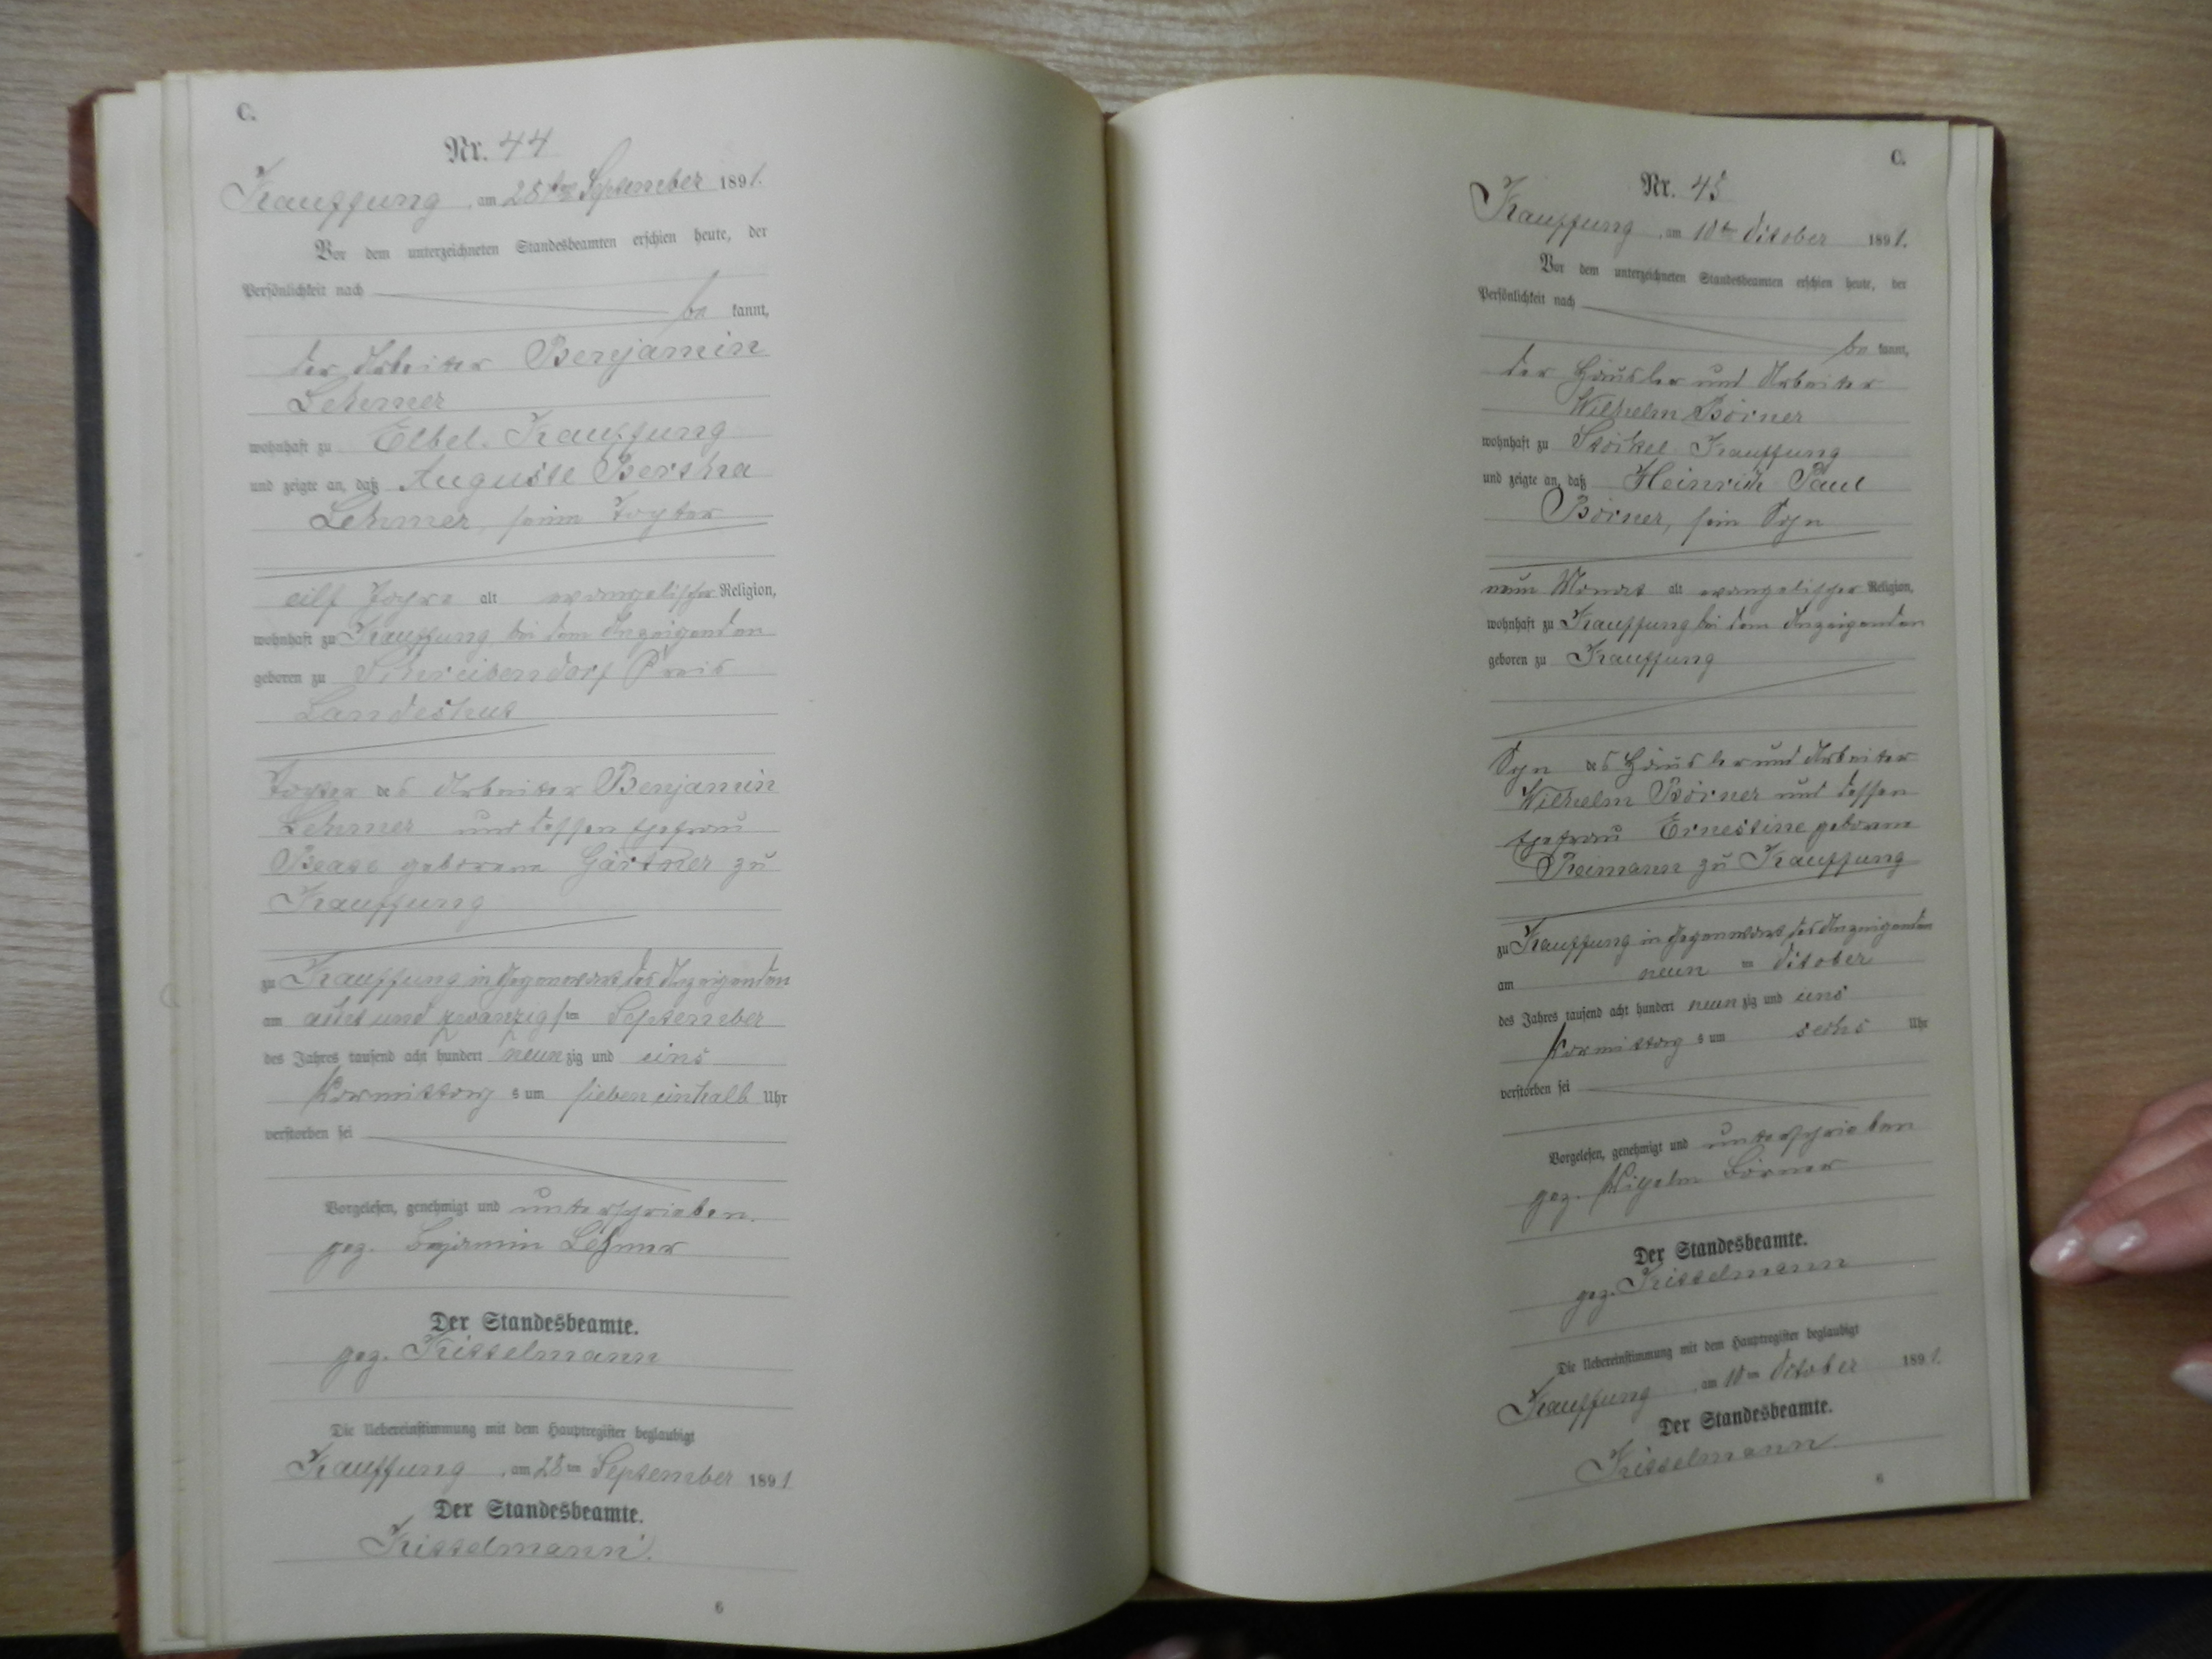 C.
Nr. 44
Kauffung, am 28ten September 1891.
Vor dem unterzeichneten Standesbeamten erschien heute, der
Persönlichkeit nach
be kannt,
der Arbeiter Benjamin
Lehmer
wohnhaft zu Elbel. Kauffung
und zeigte an, daß Auguste Bertha
Lehmer, seine Tochter
eilf Jahre alt evangelischer Religion,
wohnhaft zu Kauffung bei dem Anzeigenden
geboren zu Schreibendorf Kreis
Landeshut
Tochter des Arbeiter Benjamin
Lehmer und dessen Ehefrau
Beate geborene Gärtner zu
Kauffung
zu Kauffung in Gegenwart des Anzeigenden
am acht und zwanzigsten September
des Jahres tausend acht hundert neunzig und eins
Vormittags um sieben einhalb Uhr
verstorben sei
Vorgelesen, genehmigt und unterschrieben.
gez. Benjamin Lehmer
Der Standesbeamte.
gez. Kisselmann
Die Uebereinstimmung mit dem Hauptregister beglaubigt
Kauffung, am 28ten September 1891
Der Standesbeamte.
Kisselmann.
6
C.
Nr. 45
Kauffung, am 10ten October 1891.
Vor dem unterzeichneten Standesbeamten erschien heute, der
Persönlichkeit nach
be kannt,
der Häusler und Arbeiter
Wilhelm Börner
wohnhaft zu Stöckel Kauffung
und zeigte an, daß Heinrich Paul
Börner, sein Sohn
neun Monat alt evangelischer Religion,
wohnhaft zu Kauffung bei dem Anzeigenden
geboren zu Kauffung
Sohn des Häusler und Arbeiter
Wilhelm Börner und dessen
Ehefrau Ernestine geborene
Reimann zu Kauffung
zu Kauffung in Gegenwart des Anzeigenden
am neun ten October
des Jahres tausend acht hundert neunzig und eins
Vormittags um sechs Uhr
verstorben sei
Vorgelesen, genehmigt und unterschrieben
gez. Wilhelm Börner
Der Standesbeamte.
gez. Kisselmann
Die Uebereinstimmung mit dem Hauptregister beglaubigt
Kauffung, am 10ten October 1891.
Der Standesbeamte.
Kisselmann.
6